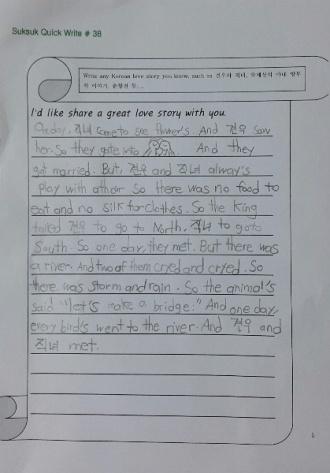 Suksuk Quick Write # 38
Write any Korean love story you know, such as 견우와 직녀,
I'd like share a great love story with you.
One day, 직녀 come to see flower's. And 견우 saw
her. So they gate into And they
got married. But, 견우 and 직녀 alway's
Play with athoer So there was no food to
eat and no silk for clothes. So the King
tolled 견우 to go to North, 직녀 to go to
South. So one day, they met. But there was
a river. And two of them cryed and cryed. So
there was storm and rain. So the animal's
said "let's make a bridge." And one day,
every bird's went to the river. And 견우 and
직녀 met.